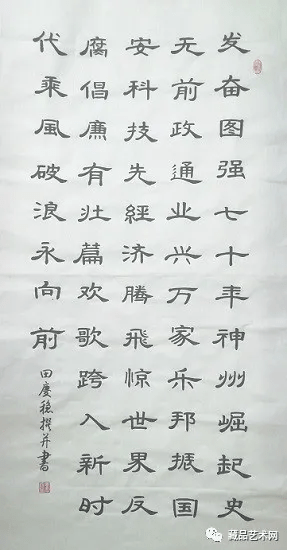 发奋图强七十年神州崛起史
无前政通业兴万家乐邦振国
安科技先經济腾飛惊世界反
腐倡廉有壮篇欢歌跨入新时
代乘風破浪永向前
田慶稳撰并書
藏品艺术网